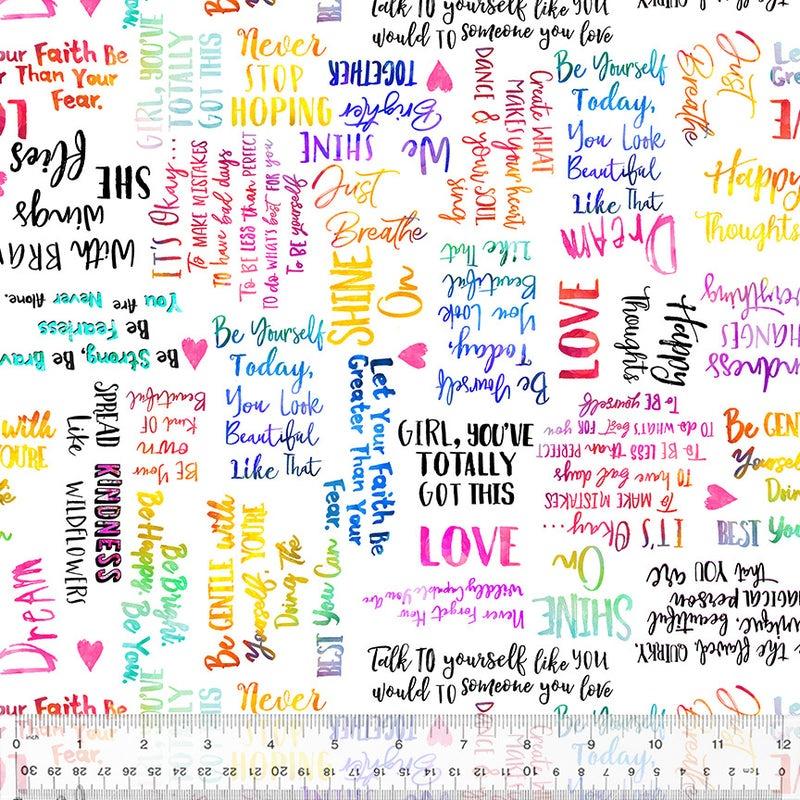 Talk TO yourself like YOU
would TO someone you love
QUIRKY,
our Faith Be
r Than Your
Fear.
LO
GIRL, YOU'VE
TOTALLY
GOT THIS
Never
STOP
HOPING
We
SHINE
Brighter
TOGETHER
Create WHAT
MAKES your heart
sing
DANCE & your SOUL
Be Yourself
Today,
You Look
Beautiful
Like That
Just
Breathe
SHE
flies
With BRA
wings
IT'S Okay...
To MAKE MISTAKES
To have bad days
To BE less than PERFECT
TO do WHAT'S BEST FOR YOU
To BE yourself
Just
Breathe
DREAM
Happy
Thoughts
Be Strong, Be Brav
Be Fearless
You Are Never Alone.
SHINE
On
Be Yourself
Today,
You Look
Beautiful
Like That
LOVE
Happy
Thoughts
ndness
HANGES
verything
Be Yourself
Today,
You Look
Beautiful
Like That
Let Your Faith Be
Greater Than Your
Fear.
with
YOU'RE
he
SPREAD KINDNESS
Like WILDFLOWERS
BE Your
own
KIND OF
Beautiful
GIRL, YOU'VE
TOTALLY
GOT THIS
IT'S Okay...
To MAKE MISTAKES
To have bad days
To BE LESS than PERFECT
TO do WHAT'S BEST FOR YOU
To BE yourself
Be GEN
Yoursel
Doin
BEST You
DREAM
Be Bright.
Be Happy. Be You.
Be GENTLE with
Yourself, YOU'RE
Doing The
BEST You Can
LOVE
Never Forget How
Wildly Capable You Are
SHINE
On
Be the flawed, QUIRKY,
unique, beautiful,
MAGICAL person
That YOU are
Talk TO yourself like YOU
would TO someone you love
our Faith Be
r Than Your
Fear.
Never
STOP
HOPING
Brighter
TOGETHER
Be Yourself
Today,
0 inch 1 2 3 4 5 6 7 8 9 10 11 12
30 29 28 27 26 25 24 23 22 21 20 19 18 17 16 15 14 13 12 11 10 9 8 7 6 5 4 3 2 1 0